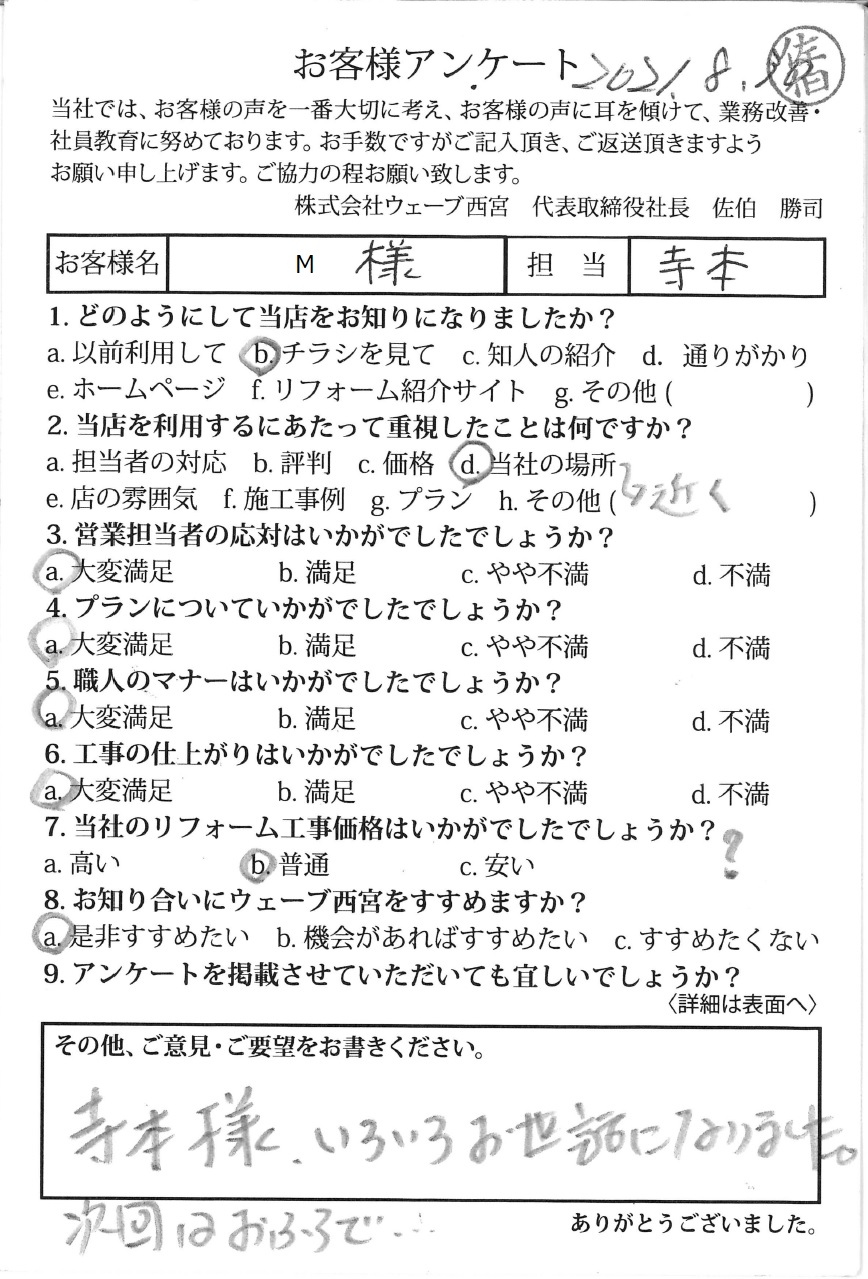 お客様アンケート 2021.8.
当社では、お客様の声を一番大切に考え、お客様の声に耳を傾けて、業務改善・
社員教育に努めております。お手数ですがご記入頂き、ご返送頂きますよう
お願い申し上げます。ご協力の程お願い致します。
株式会社ウェーブ西宮 代表取締役社長 佐伯 勝司
お客様名 M 様 担当 寺本
1. どのようにして当店をお知りになりましたか？
a. 以前利用して b. チラシを見て c. 知人の紹介 d. 通りがかり
e. ホームページ f. リフォーム紹介サイト g. その他 ( )
2. 当店を利用するにあたって重視したことは何ですか？
a. 担当者の対応 b. 評判 c. 価格 d. 当社の場所
e. 店の雰囲気 f. 施工事例 g. プラン h. その他 ( 近く )
3. 営業担当者の応対はいかがでしたでしょうか？
a. 大変満足 b. 満足 c. やや不満 d. 不満
4. プランについていかがでしたでしょうか？
a. 大変満足 b. 満足 c. やや不満 d. 不満
5. 職人のマナーはいかがでしたでしょうか？
a. 大変満足 b. 満足 c. やや不満 d. 不満
6. 工事の仕上がりはいかがでしたでしょうか？
a. 大変満足 b. 満足 c. やや不満 d. 不満
7. 当社のリフォーム工事価格はいかがでしたでしょうか？ ?
a. 高い b. 普通 c. 安い
8. お知り合いにウェーブ西宮をすすめますか？
a. 是非すすめたい b. 機会があればすすめたい c. すすめたくない
9. アンケートを掲載させていただいても宜しいでしょうか？
〈詳細は表面へ〉
その他、ご意見・ご要望をお書きください。
寺本様、いろいろお世話になりました。
次回はおふろで…
ありがとうございました。